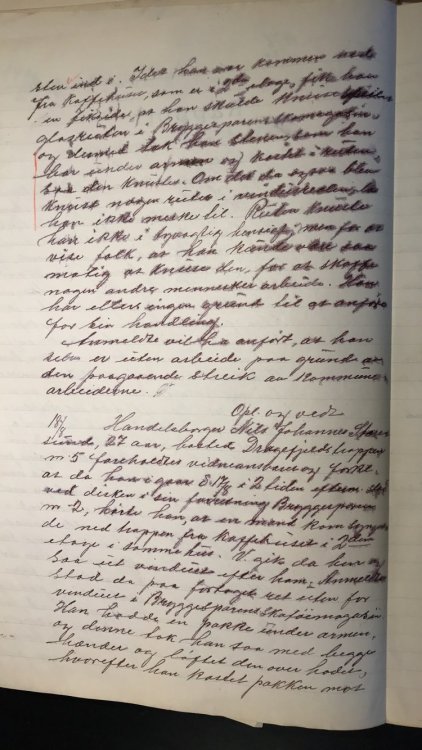 sten ind i. Idet han var kommen ned
fra kaffehuset, som er i 2den etage, fik han
en fiks ide, at han skulde knuse speil
glasruten i Bryggesporens Skomagasin
og dermed tok han stenen, som han
har under armen og kastet i ruten
knust nogen ruter i
han ikke merke til. Ruten knuste
han ikke i hensigt, men for at
vise folk, at han kunde være saa
modig at knuse den, for at skaffe
nogen andre mennesker arbeide. Han
har ellers ingen grund til at anføre
for sin handling.
Anmeldte vil ha anført, at han
selv er uten arbeide paa grund av
den paagaaende streik av kommune
arbeiderne.
Opl. og vedt
18/8 Handelsborger Nils Johannes
27 aar, bosted Dragefjeldstrappen
no 5 foreholdtes vidneansvaret og forkl.
at da han igaar 17/8 i 2 tiden efterm. stod
ved disken i sin forretning Bryggesporen
no 2, hørte han, at en mand kom
de ned trappen fra kaffehuset i 2den
etage i samme hus. V. gik da hen og
saa ut vinduet efter ham. Anmeldte
stod da paa fortoget ret uten for
vinduet i Bryggesporens Skotøimagasin.
Han hadde en pakke under armen,
og denne tok han saa med begge
hænder og løftet den over hodet,
hvorefter han kastet pakken mot